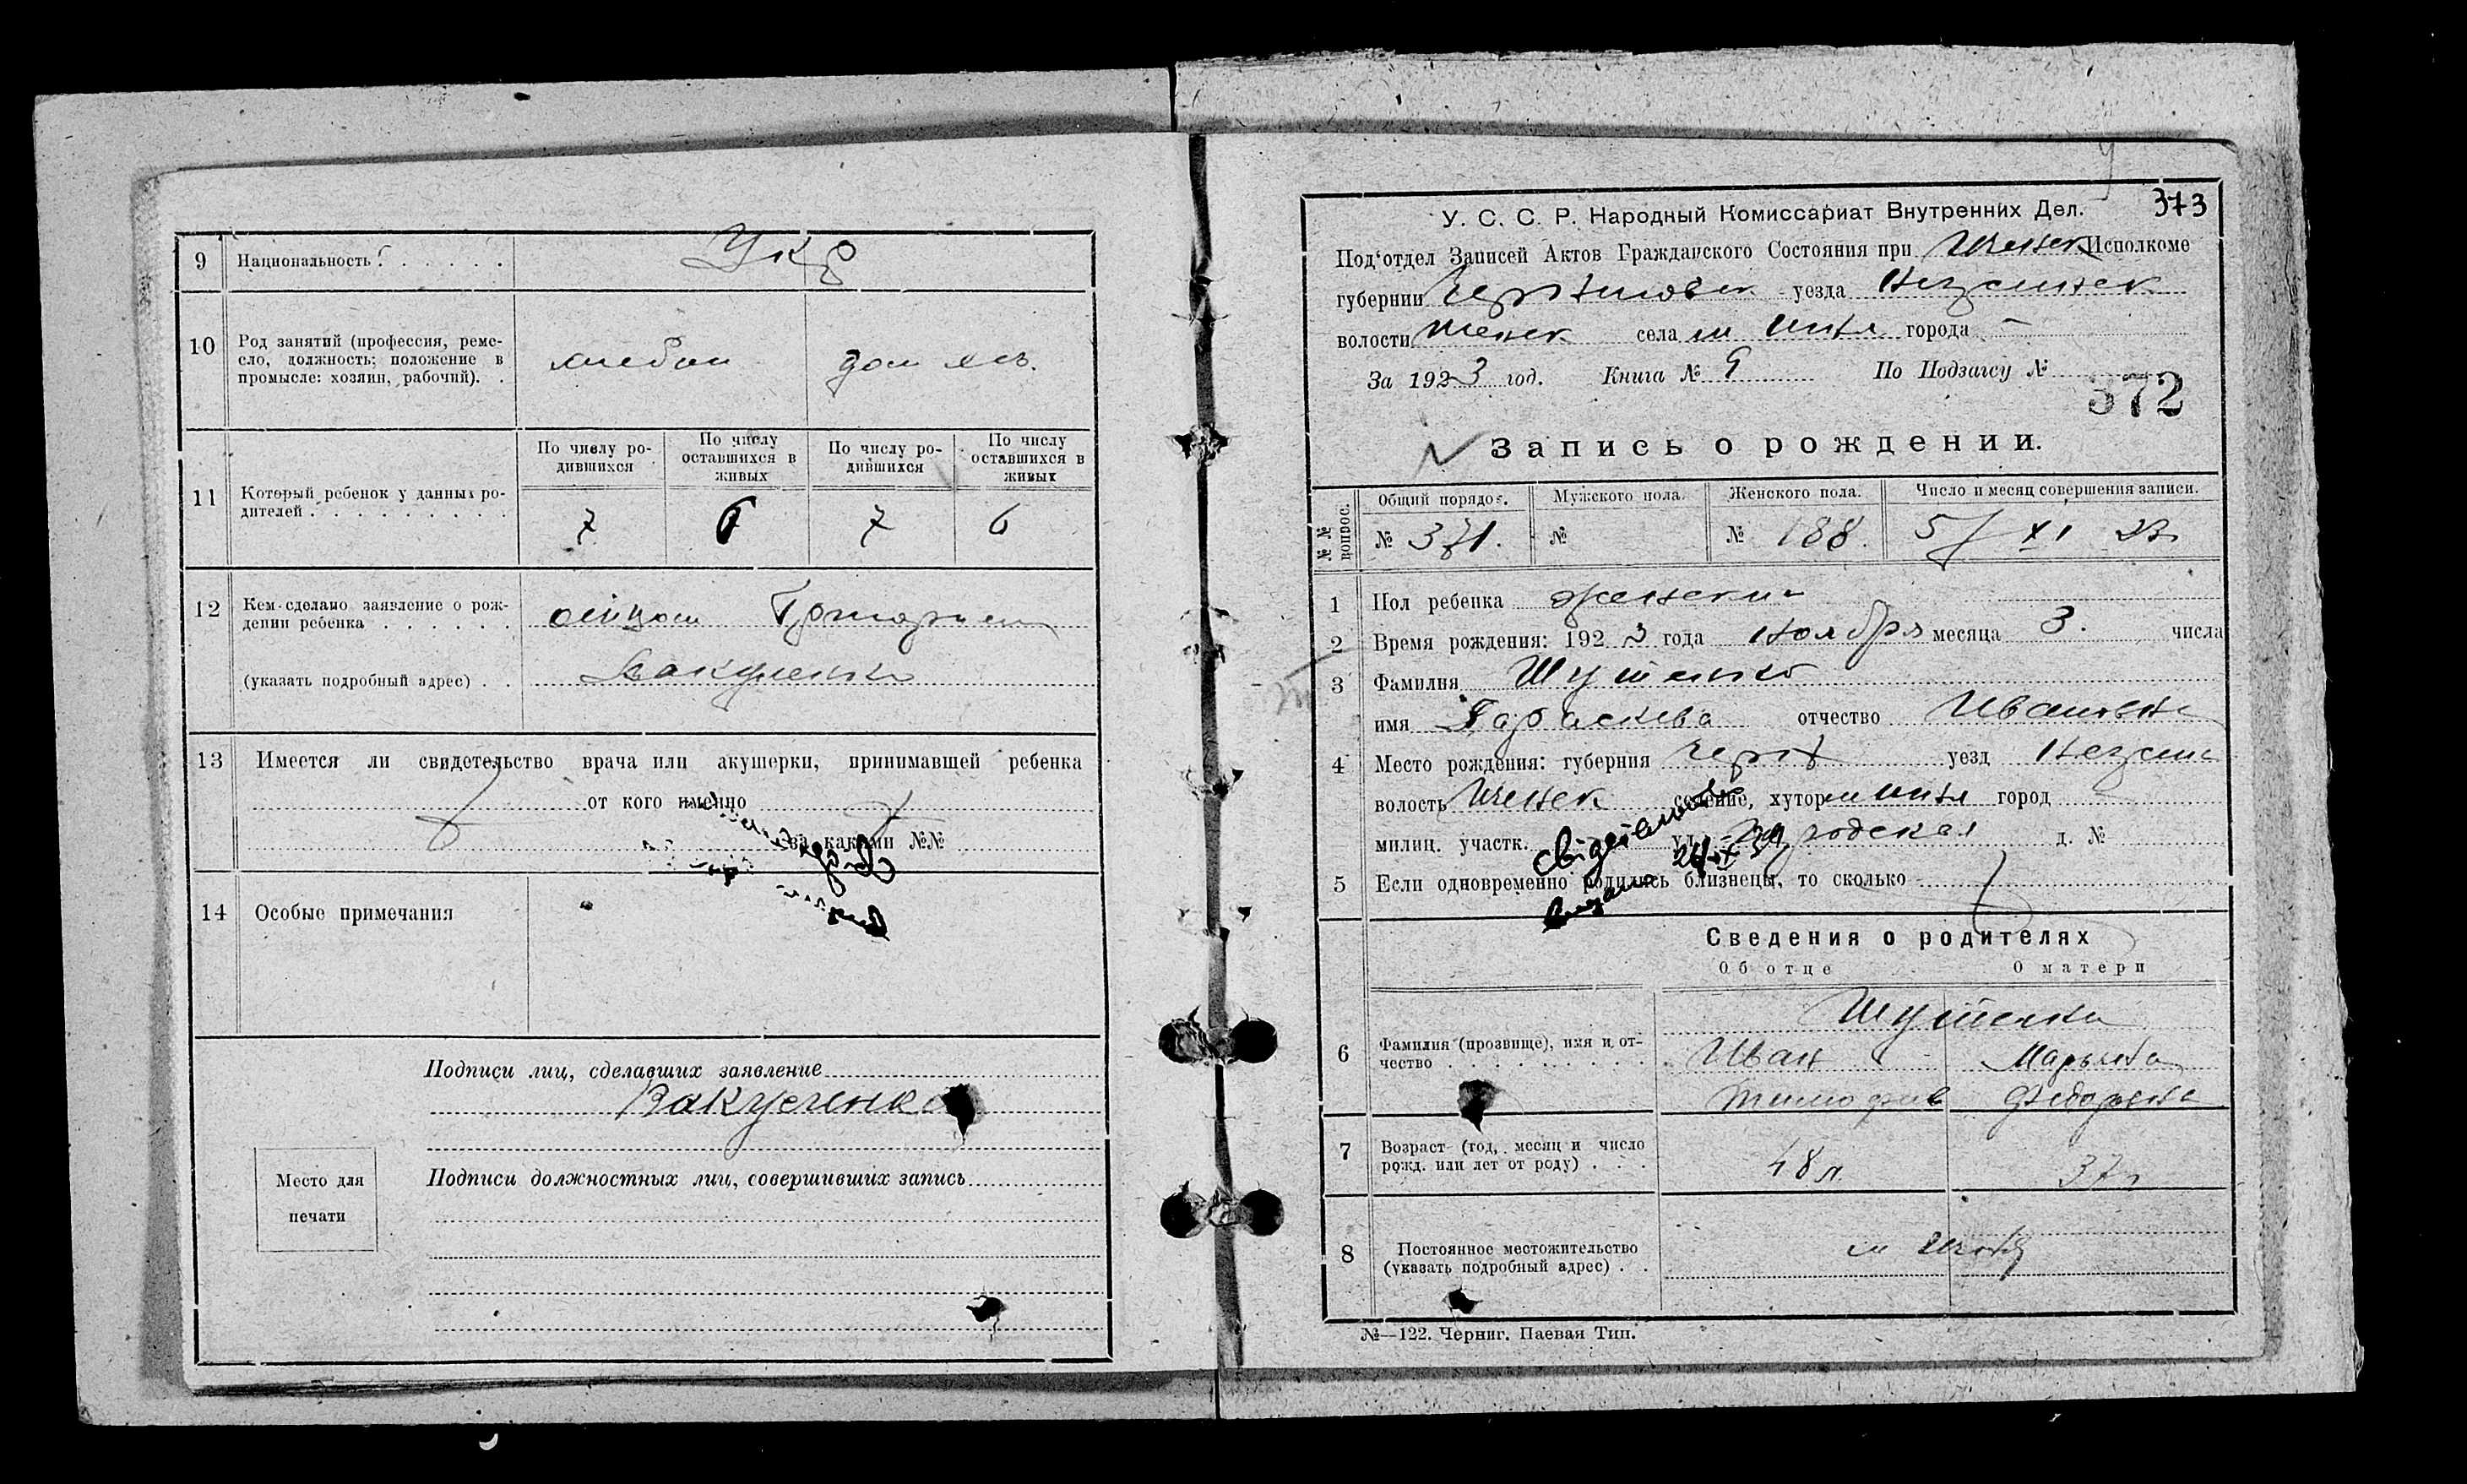 9 Национальность . . . . . . Укр
10 Род занятий (профессия, реме-
сло, должность; положение в
промысле: хозяин, рабочий). . хлебоп дом хоз.
11 Который ребенок у данных ро-
дителей . . . . . . . . . .
По числу ро-
дившихся
По числу
оставшихся в
живых
По числу ро-
дившихся
По числу
оставшихся в
живых
7 6 7 6
12 Кем сделано заявление о рож-
дении ребенка . . . . . . отцом Григорием
(указать подробный адрес) . . Вакуленко
13 Имеется ли свидетельство врача или акушерки, принимавшей ребенка
от кого именно
за какими №№
14 Особые примечания
Подписи лиц, сделавших заявление
Вакуленко
Место для
печати
Подписи должностных лиц, совершивших запись
373
У. С. С. Р. Народный Комиссариат Внутренних Дел.
Под‘отдел Записей Актов Гражданского Состояния при Иченск Исполкоме
губернии Черниговск уезда Нежинск
волости Иченск села м Ичня города —
За 1923 год. Книга № 9 По Подзагсу №
372
Запись о рождении.
№№ вопрос.
Общий порядок. Мужского пола. Женского пола. Число и месяц совершения записи.
№ 371. № № 188. 5/XI 23
1 Пол ребенка женский
2 Время рождения: 1923 года ноября месяца 3. числа
3 Фамилия Шутенко
имя Параскева отчество Ивановна
4 Место рождения: губерния Черн уезд Нежин
волость Иченск селение, хутор м Ичня город
милиц. участк. ул. д. №
5 Если одновременно родились близнецы, то сколько
Сведения о родителях
Об отце О матери
Шутенко
6 Фамилия (прозвище), имя и от-
чество . . . . . . . . . Иван Марьина
Тимофив Федоровна
7 Возраст (год, месяц и число
рожд. или лет от роду) . . . 48 л. 37 л
8 Постоянное местожительство
(указать подробный адрес) . . м Ичня
№—122. Черниг. Паевая Тип.